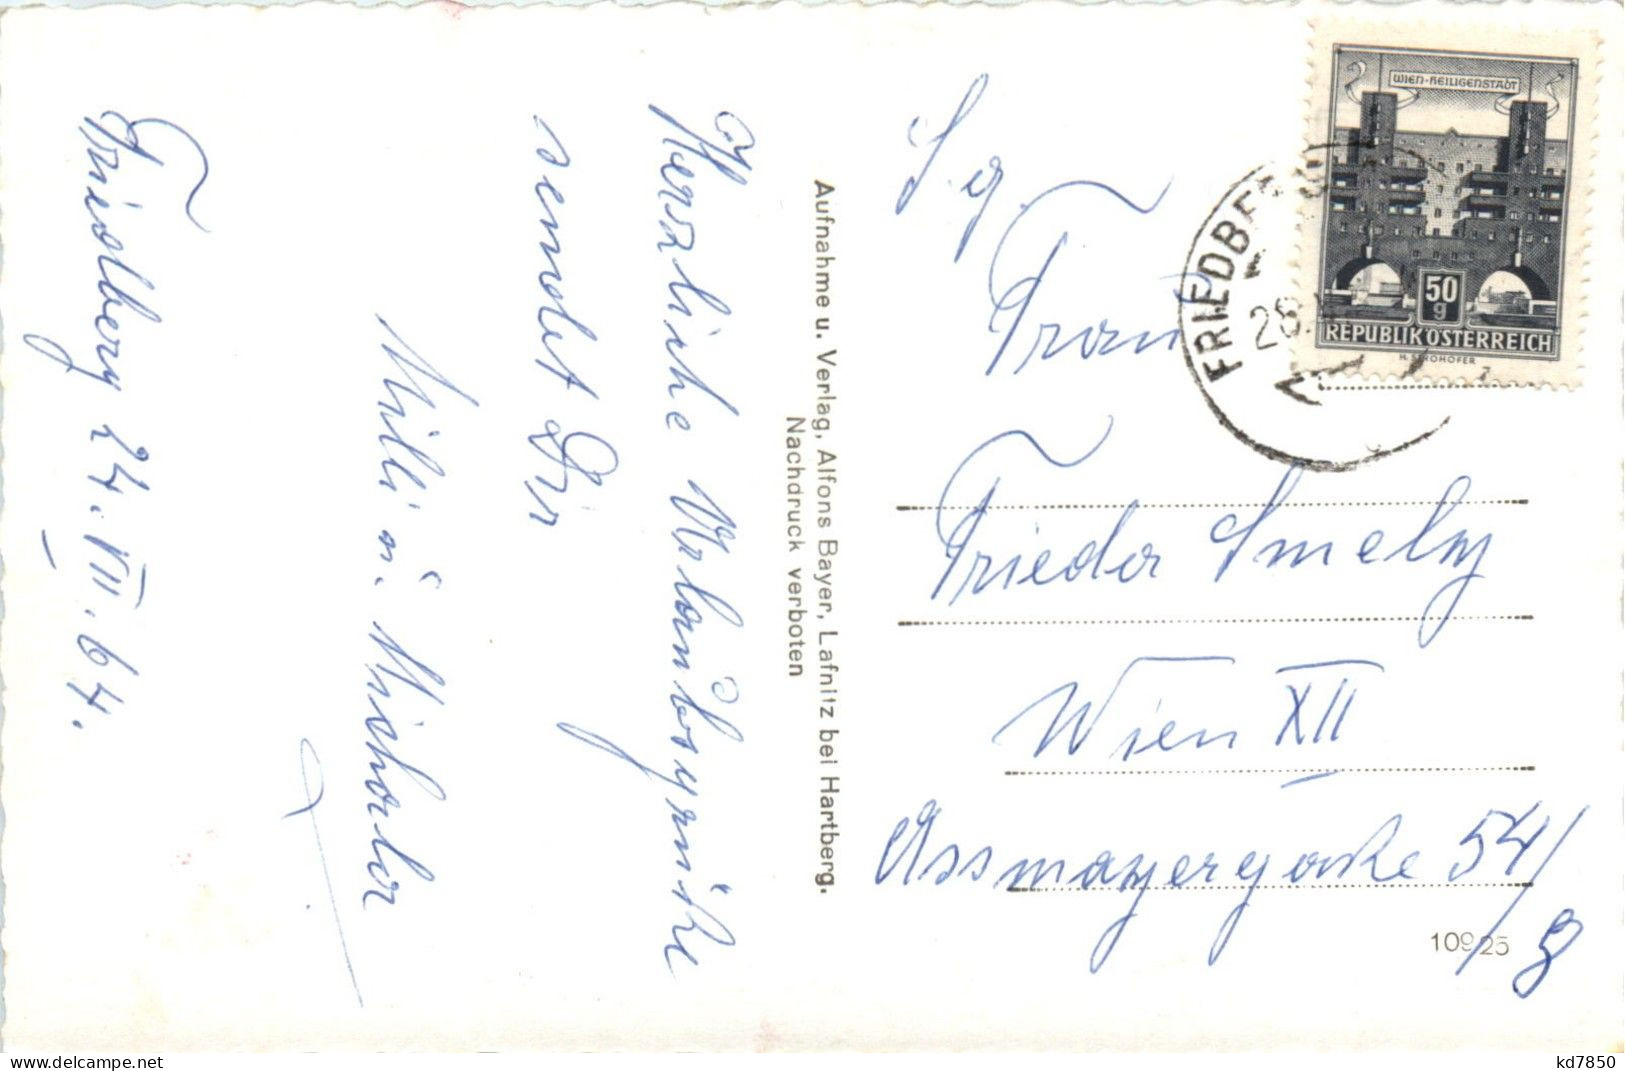 Friedberg 24. VII. 64.
Herzliche Urlaubsgrüße
sendet Dir
Milli u.
Aufnahme u. Verlag, Alfons Bayer, Lafnitz bei Hartberg.
Nachdruck verboten
WIEN-HEILIGENSTADT
50
g
REPUBLIK ÖSTERREICH
H. STROHOFER
FRIEDBERG
Sg.
Frau
Frieda Smely
Wien XII
Assmayergasse 54/
8
10925
delcampe.net
kd7850